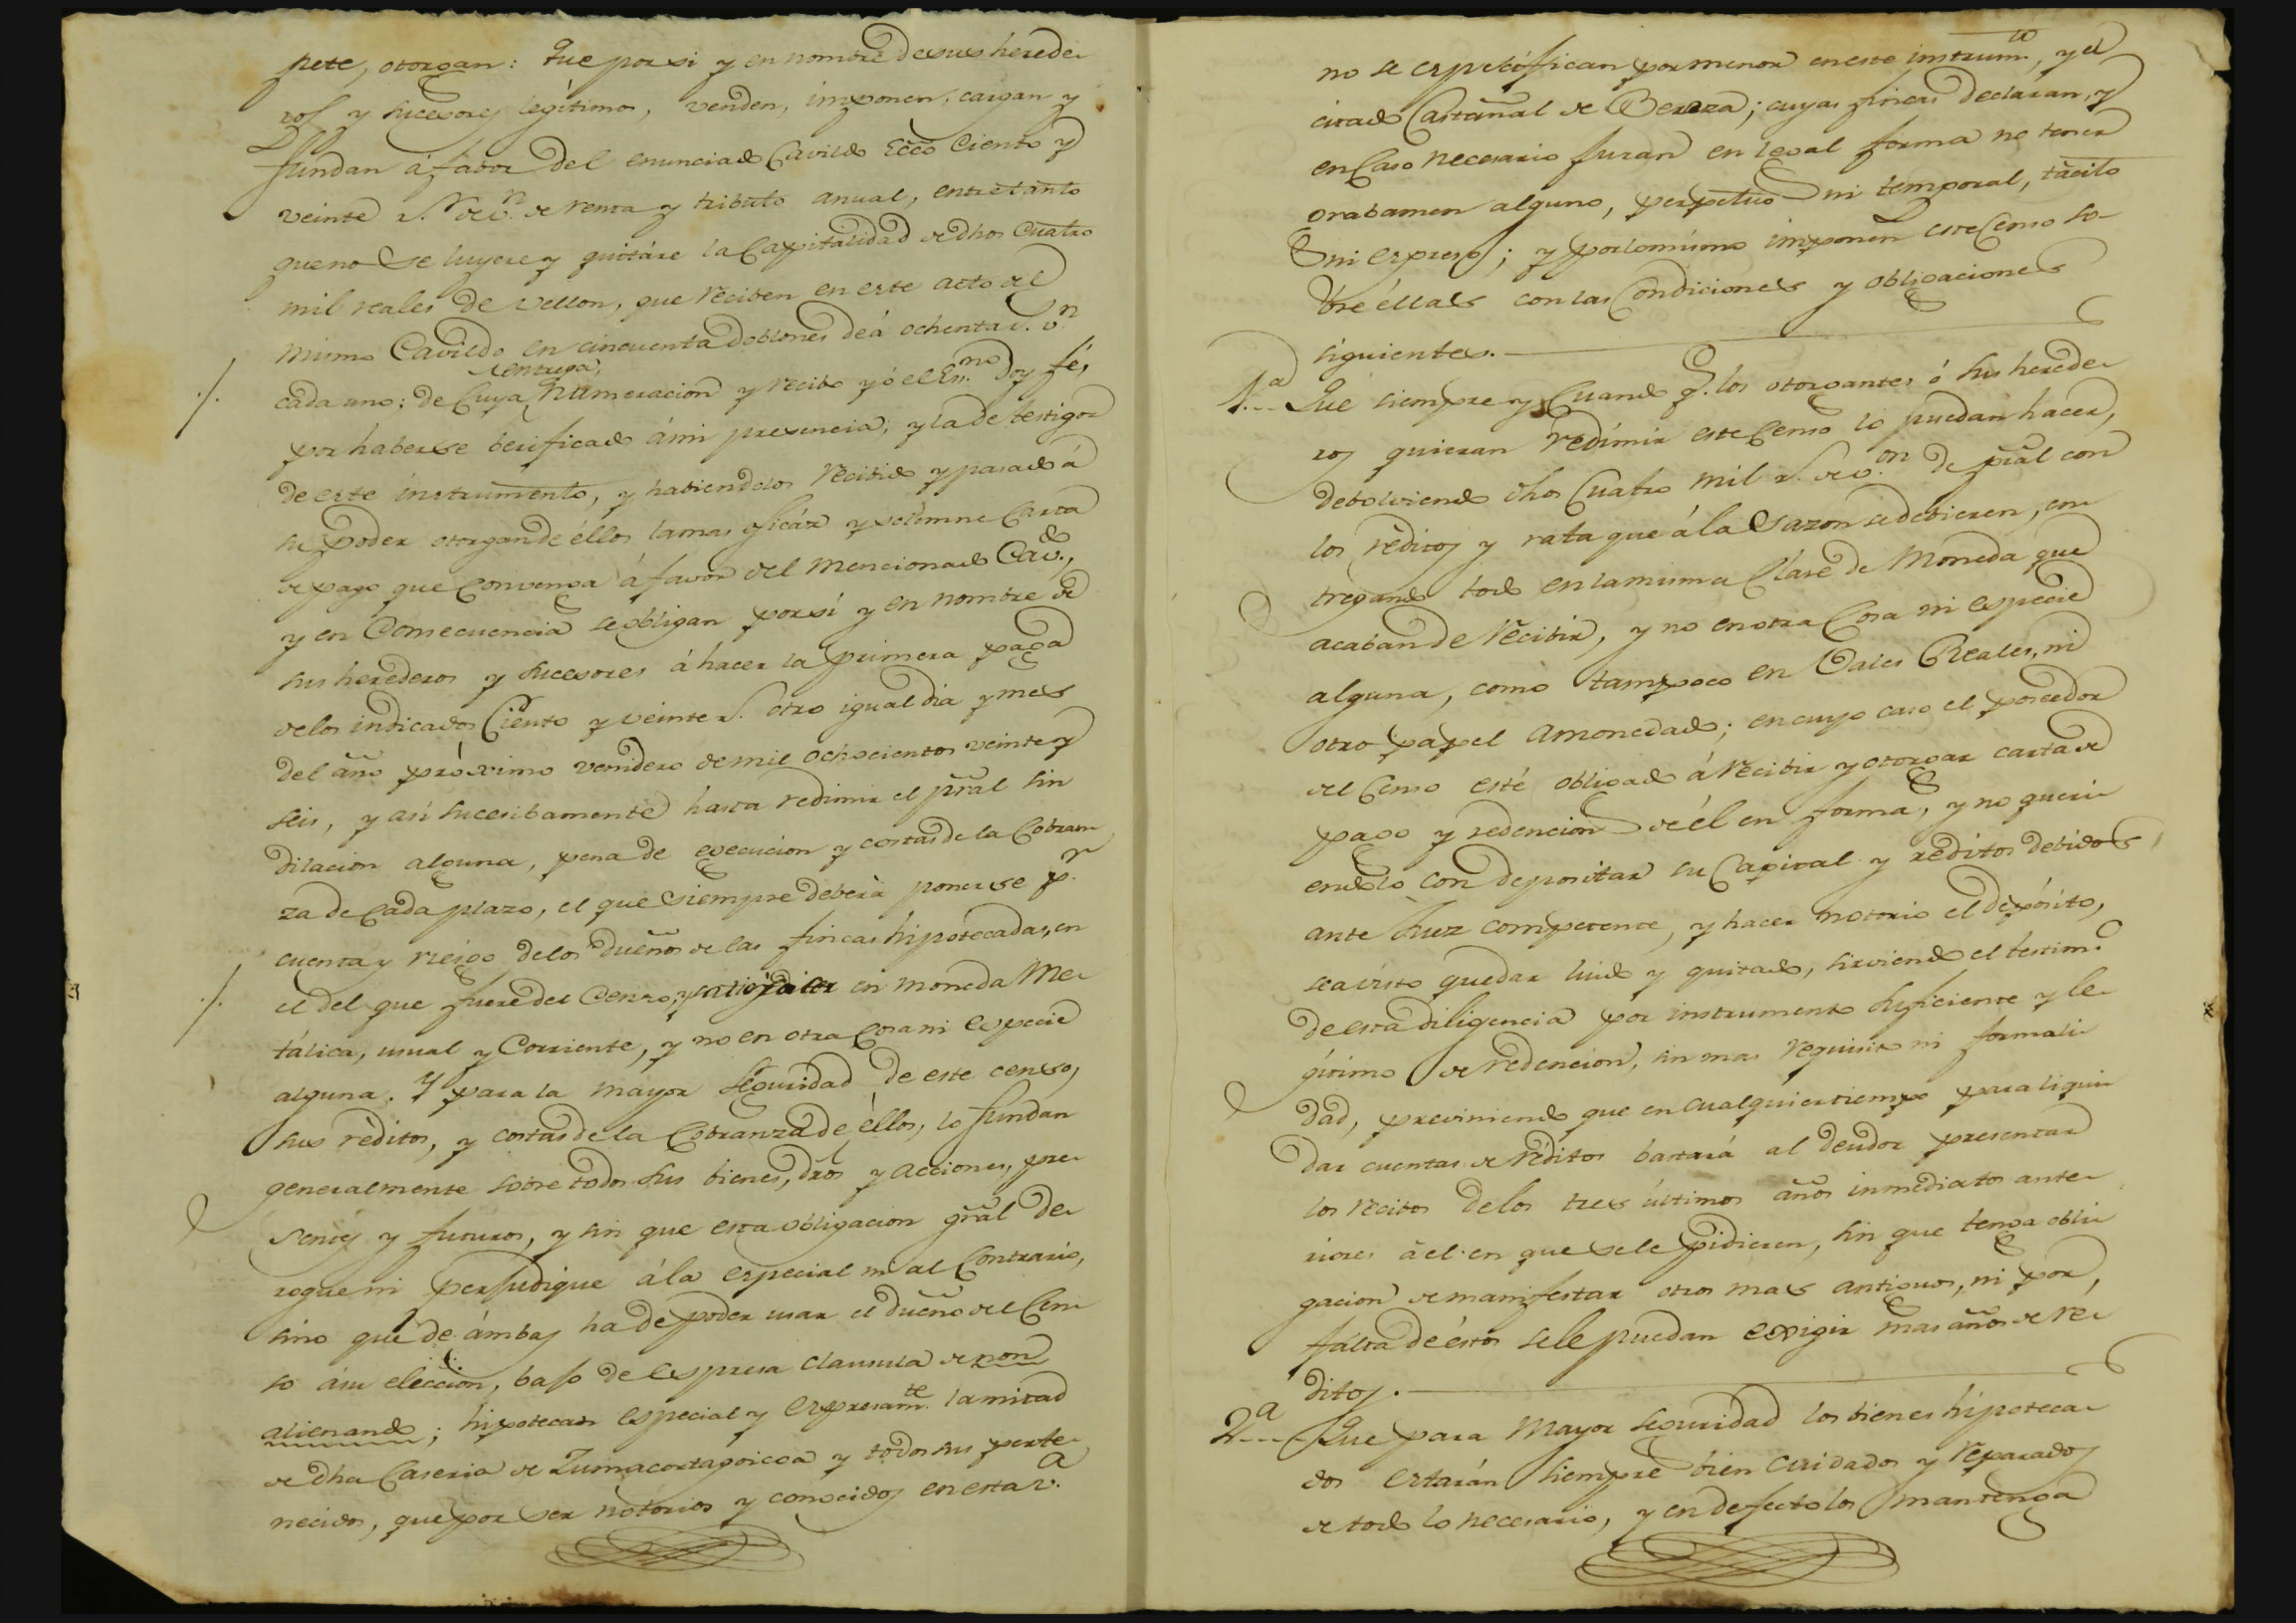 pete, otorgan: Que por si y en nombre de sus herede-
ros y sucesores legítimos, venden, imponen, cargan y
fundan á fabor del enunciado Cavildo Ecco Ciento y
veinte r.s de v.n de renta y tributo anual, entretanto
que no se luyere y quitáre la Capitalidad de dhos Cuatro
mil reales de vellon, que reciben en este acto del
mismo Cavildo en cincuenta doblones de á ochenta r.s v.n
entrega,
cada uno: de Cuya numeracion y recibo yó el Es.no doy fé,
por haberse berificado á mi presencia, y la de testigos
de este instrumento, y habiendolos recibido y pasado á
su poder otorgan de éllos la mas eficáz y solemne Carta
de pago que Convenga á favor del mencionado Cav.do,
y en Consecuencia se obligan por sí y en nombre de
sus herederos y sucesores á hacer la primera paga
de los indicados Ciento y veinte r.s otro igual dia y mes
del año próximo venidero de mil ochocientos veinte y
seis, y así sucesibamente hasta redimir el pral sin
dilacion alguna, pena de execucion y costas de la Cobran-
za de Cada plazo, el que siempre deberá ponerse p.r
cuenta y riesgo de los dueños de las fincas hipotecadas, en
el del que fuere del Censo, y en moneda Me-
tálica, usual y Corriente, y no en otra Cosa ni especie
alguna. Y para la mayor seguridad de este censo,
sus réditos, y costas de la Cobranza de éllos, lo fundan
generalmente sobre todos sus bienes, dros y acciones, pre-
sentes y futuros, y sin que esta obligacion gral de-
rogue ni perjudique á la especial ni al Contrario,
sino que de ámbas ha de poder usar el dueño del Cen-
so á su eleccion, bajo de espresa clausula de non
alienando; hipotecan especial y expresam.te la mitad
de dha Caseria de Zumacortagoicoa y todos sus perte-
necidos, que por ser notórios y conocidos en esta v.a
no se expecifican por menor en este instrum.to, y el
citado Castañal de Bereza; cuyas fincas declaran, y
en Caso necesario juran en legal forma no tener
grabamen alguno, perpetuo ni temporal, tácito
ni expreso; y por lo mismo imponen este Censo so-
bre éllas con las Condiciones y obligaciones
siguientes.
1.a Que siempre y Cuando q.e los otorgantes ó sus herede-
ros quieran redimir este Censo lo puedan hacer,
debolviendo dhos Cuatro mil r.s de v.on de pral con
los réditos y rata que á la sazon se debieren, en-
tregando todo en la misma Clase de Moneda que
acaban de recibir, y no en otra Cosa ni especie
alguna, como tampoco en Vales Reales, ni
otro papel amonedado; en cuyo caso el poseedor
del Censo esté obligado á recibir y otorgar carta de
pago y redencion de él en forma, y no queri-
endolo con depositar su Capital y reditos debidos,
ante Juez competente, y hacer notorio el depósito,
sea visto quedar luido y quitado, sirviendo el testim.o
de esta diligencia por instrumento suficiente y le-
gitimo de redencion, sin mas requisito ni formali-
dad, previniendo que en cualquier tiempo para liqui-
dar cuentas de réditos bastará al deudor presentar
los recibos de los tres últimos años inmediatos ante-
riores á el en que se le pidieren, sin que tenga obli-
gacion de manifestar otros mas antiguos, ni por
falta de éstos se le puedan exigir mas años de ré-
ditos.
2.a Que para Mayor seguridad los bienes hipoteca-
dos estarán siempre bien cuidados y reparados
de todo lo necesario, y en defecto los mantenga